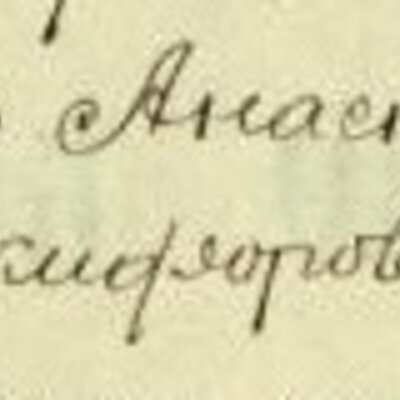 Анас
кифоров